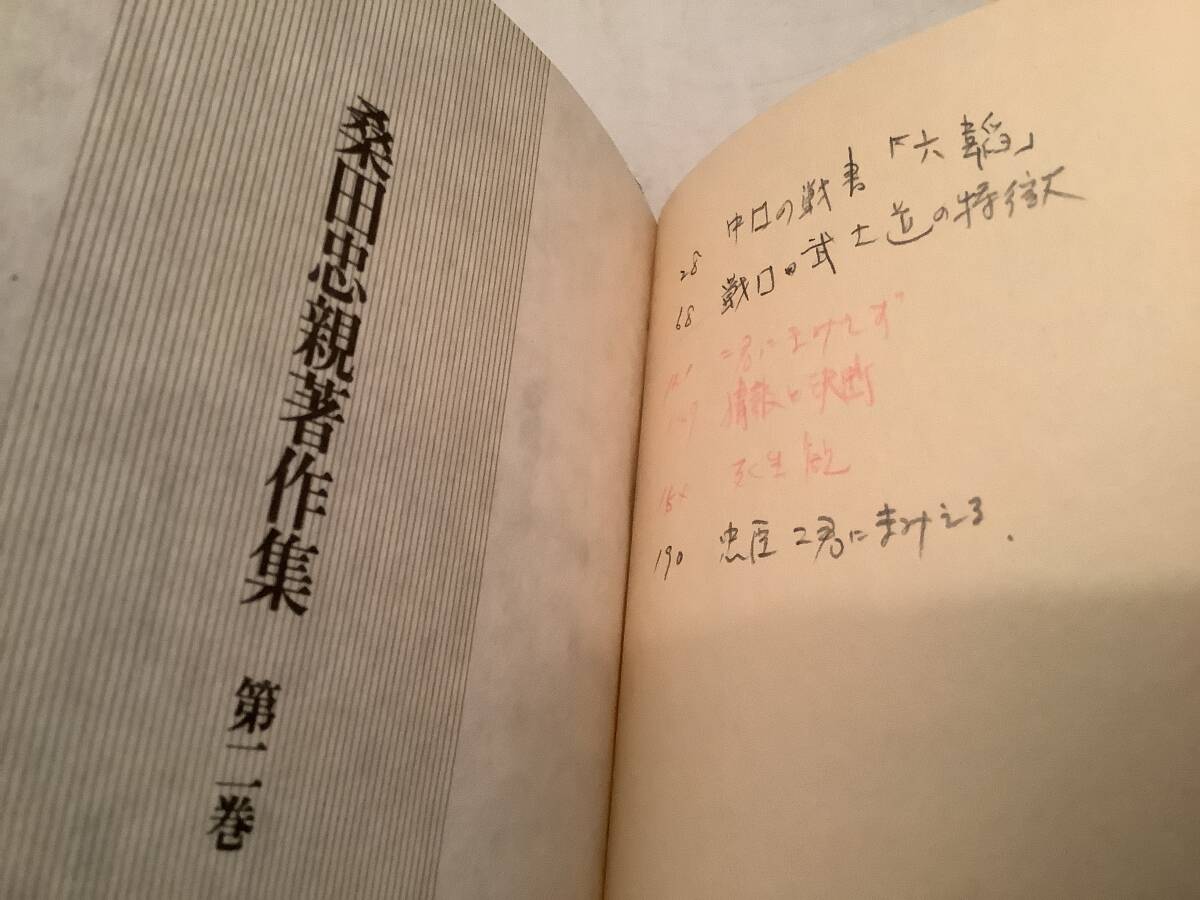 桑田忠親著作集
第二巻
28 中国の戦書「六韜」
68 戦国の武士道の特徴
二君にまみえず
情報と決断
190 忠臣二君にまみえる.